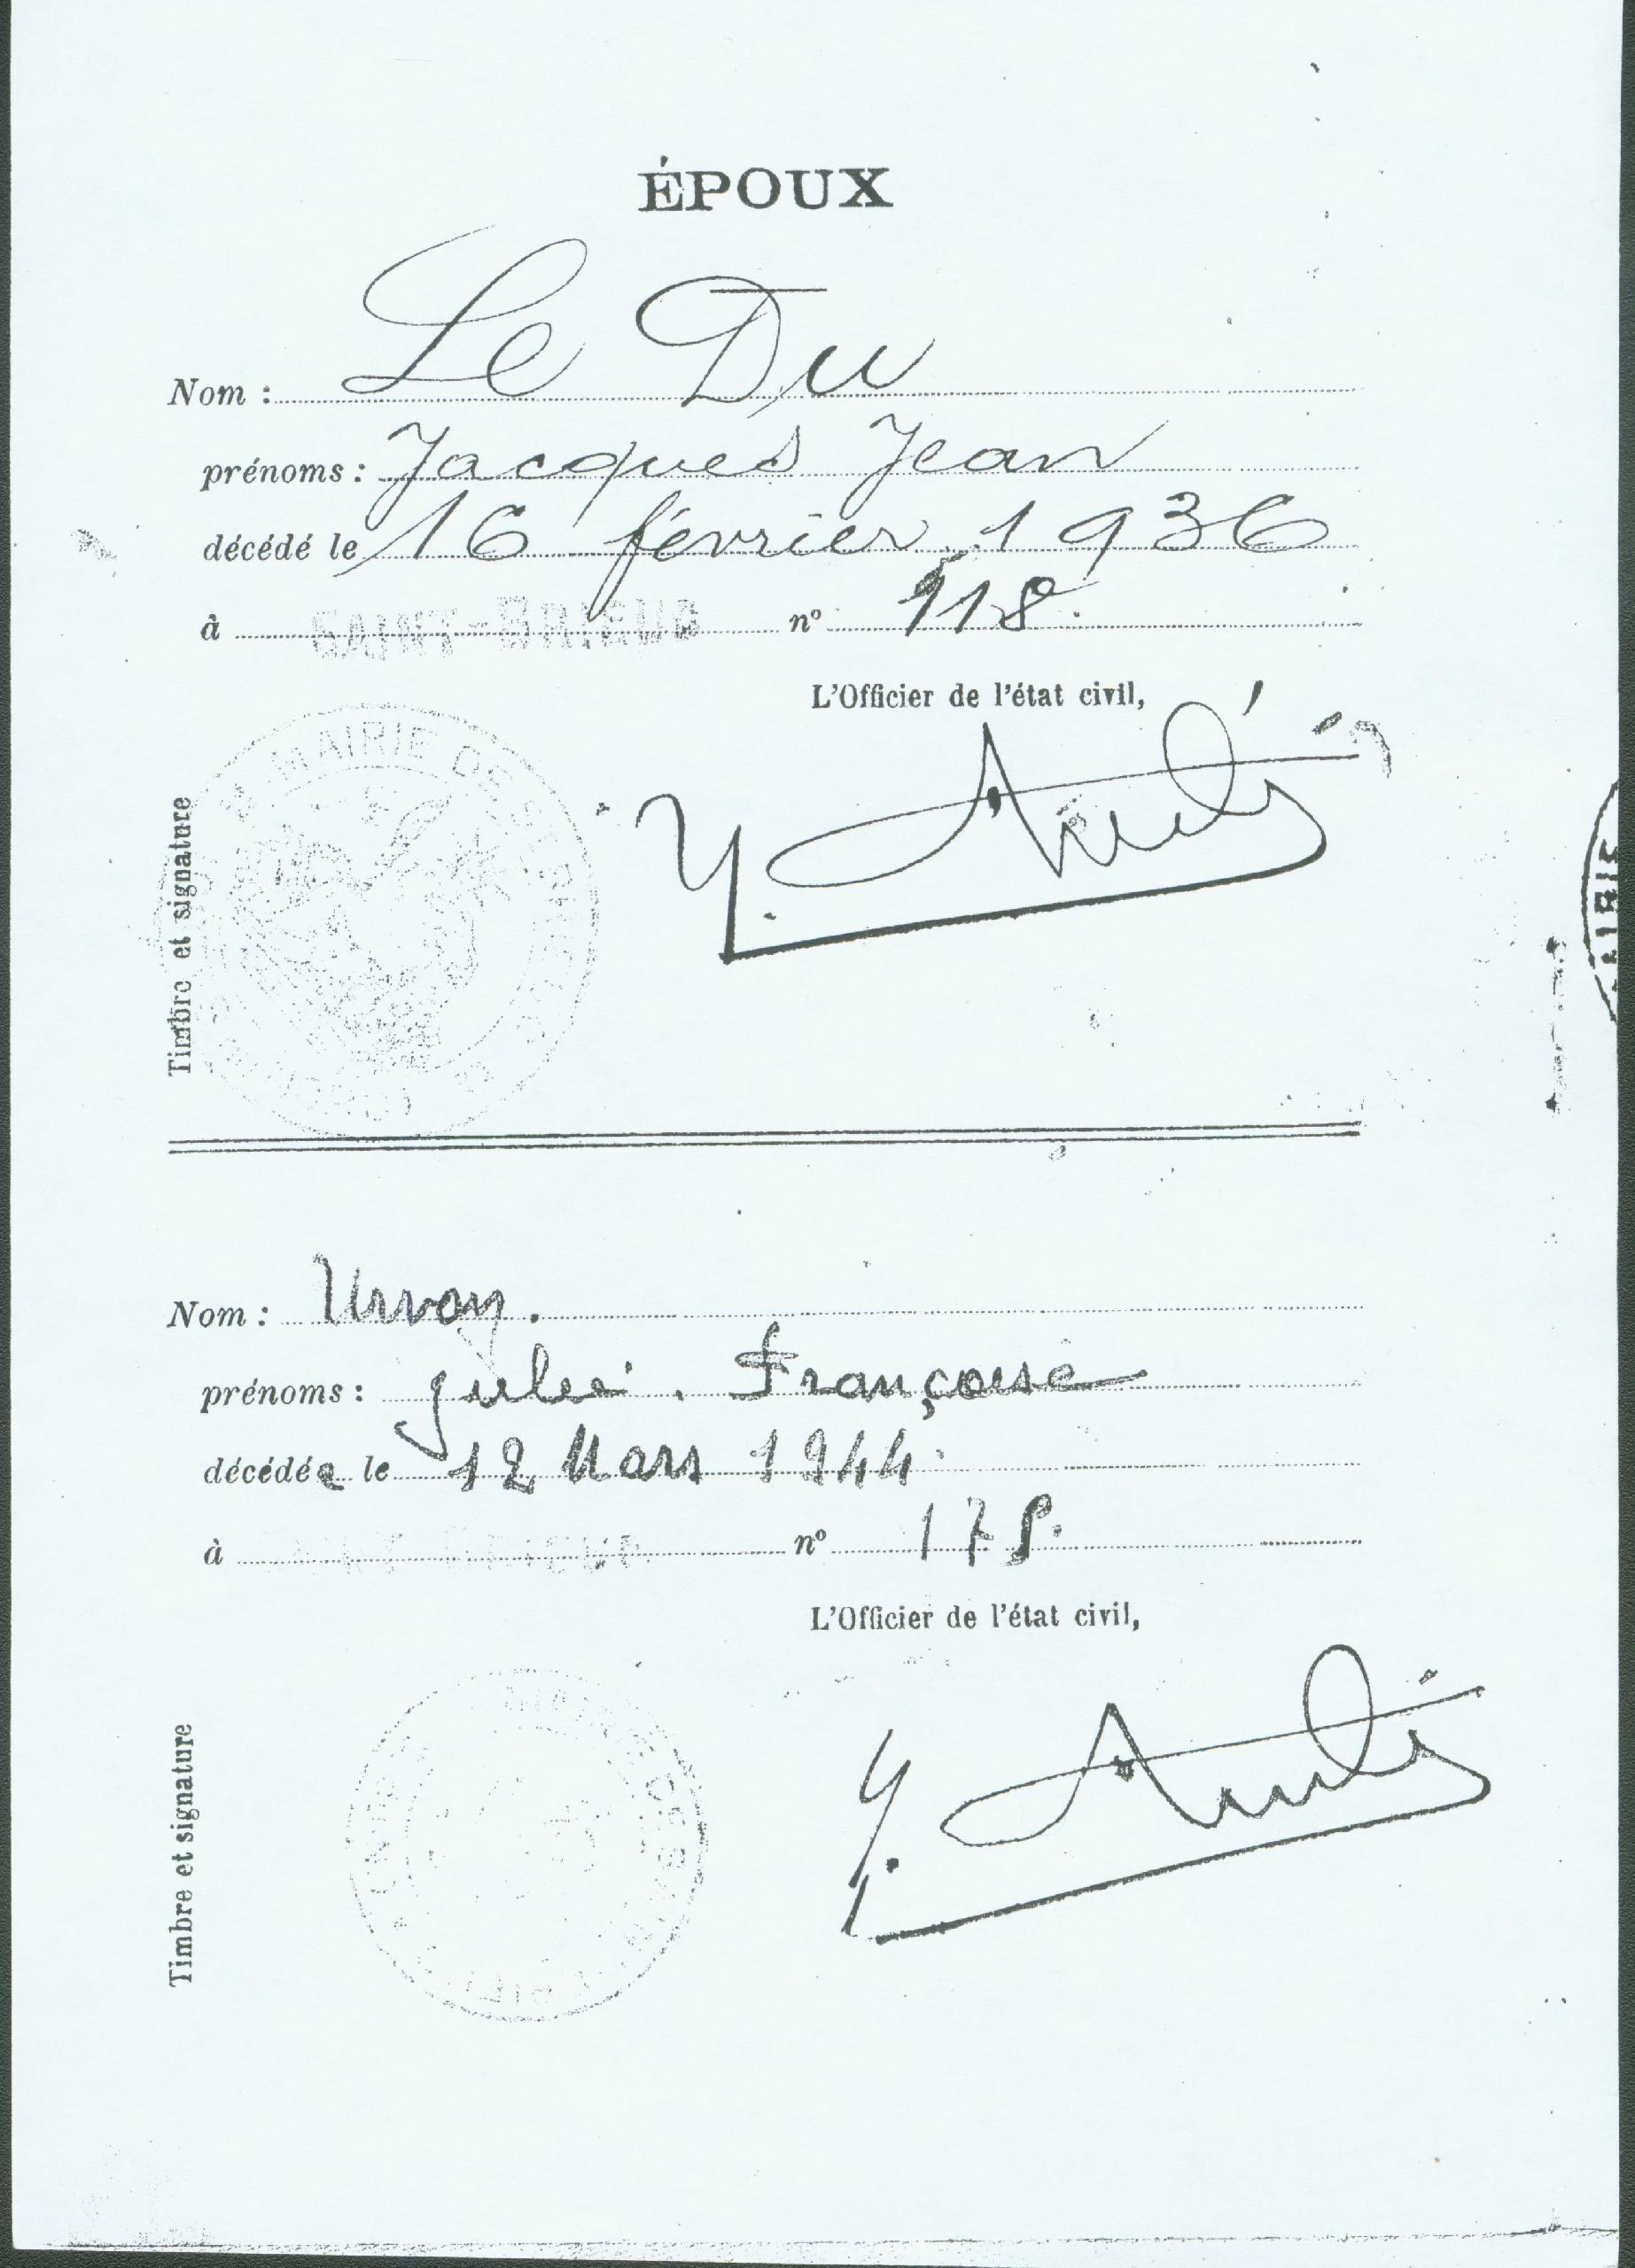 ÉPOUX
Nom : Le Du
prénoms : Jacques Jean
décédé le 16 février 1936
à SAINT-BRIEUC nº 118.
L'Officier de l'état civil,
Timbre et signature
MAIRIE DE ST BRIEUC
Nom : Urvoy.
prénoms : Julie . Françoise
décédée le 12 Mars 1944.
à nº 178.
L'Officier de l'état civil,
Timbre et signature